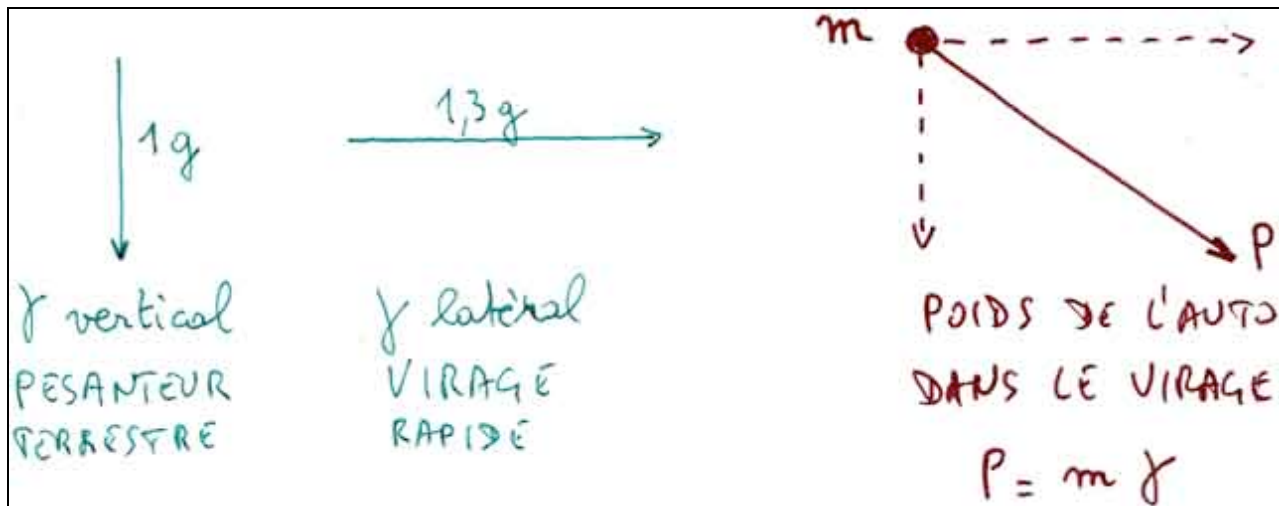 1g
γ vertical
PESANTEUR
TERRESTRE
1,3g
γ latéral
VIRAGE
RAPIDE
m
P
POIDS DE L'AUTO
DANS LE VIRAGE
P = m γ